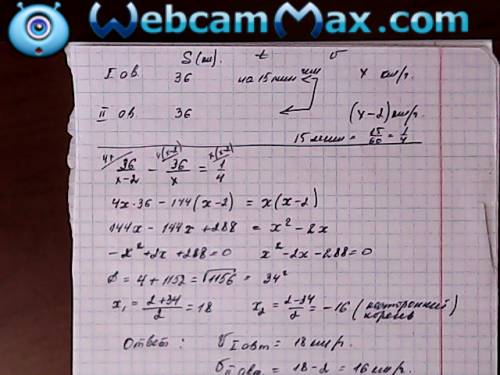 WebcamMax.com
S(км) t υ
I ав. 36 на 15 мин x км/г.
II ав. 36 (x-2) км/г.
15 мин = 15/60 = 1/4
4x/ 36/x-2 - x(x-2)/ 36/x = x(x-2)/ 1/4
4x·36 - 144(x-2) = x(x-2)
144x - 144x + 288 = x² - 2x
-x² + 2x + 288 = 0 x² - 2x - 288 = 0
D = 4 + 1152 = √1156 = 34²
x₁ = 2+34/2 = 18 x₂ = 2-34/2 = -16 (посторонний
корень)
Ответ: υ I авт = 18 км/г.
υ II авт = 18-2 = 16 км/г.